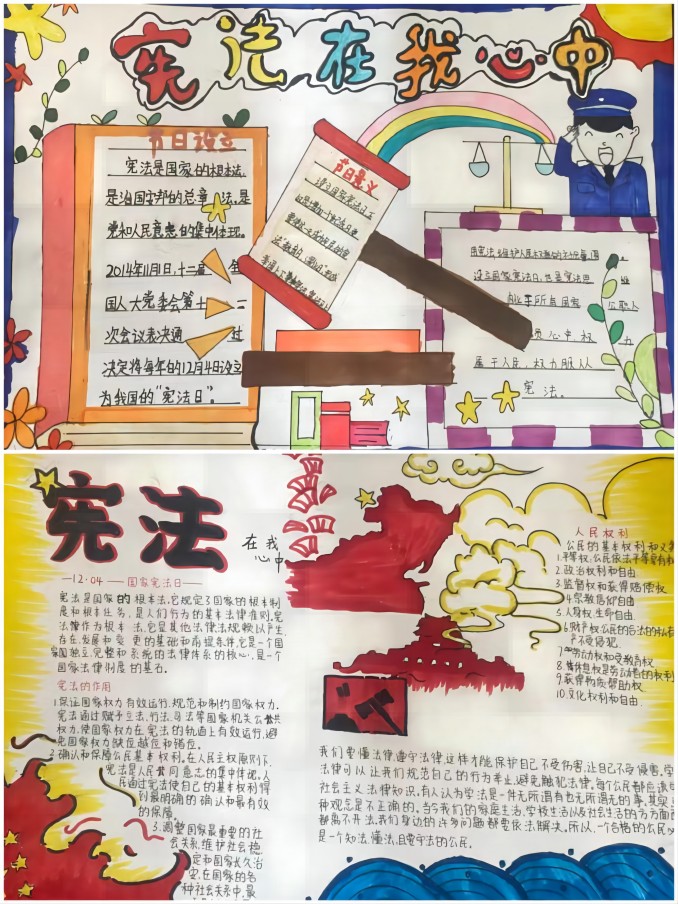 宪法在我心中
节日设立
宪法是国家的根本法,
是治国安邦的总章 法,是
党和人民意志的集中体现。
2014年11月1日,十二届 全
国人大党委会第十 二
次会议表决通 过
决定将每年的12月4日设立
为我国的“宪法日”。
节日意义
设立国家宪法日,
属于人民,权力服从
宪法。
宪法
在我
心中
—12·04——国家宪法日—
宪法是国家的根本法,它规定了国家的根本制
度和根本任务,是人们行为的基本法律准则,宪
法律作为根本法,它是其他法律法规赖以产生、
存在、发展和变更的基础和前提条件,它是一个国
家独立、完整和系统的法律体系的核心,是一个
国家法律制度的基石。
宪法的作用
1.保证国家权力有效运行,规范和制约国家权力。
宪法通过赋予立法、行法、司法等国家机关公共
权力,使国家权力在宪法的轨道上有效运行,避
免国家权力缺位越位和错位。
2.确认和保障公民基本权利。在人民主权原则下,
宪法是人民共同意志的集中体现。人
民通过宪法使自己的基本权利得
到最明确的确认和最有效
的保障。
3.调整国家最重要的社
会关系,维护社会稳
定和国家长久治
安,在国家的各
种社会关系中,最
人民权利
公民的基本权利和义务
1.平等权,公民依法平等享有权
2.政治权利和自由
3.监督权和获得赔偿权
4.宗教信仰自由
5.人身权生命自由
6.财产权公民的合法的私有
产不受侵犯.
7.劳动权和受教育权
8.休息权是劳动者的权利
9.获得物质帮助权
10.文化权利和自由
我们要懂法律,遵守法律,这样才能保护自己不受伤害,让自己不受侵害,学
法律可以让我们规范自己的行为举止,避免触犯法律,每个公民都应该
社会主义法律知识,有人认为学法是一件无所谓有也无所谓无的事,其实
种观念是不正确的。当今我们的家庭生活,学校生活以及社会生活的方方面面
都离不开法,我们身边的许多问题都要依法解决。所以,一个合格的公民必
是一个知法、懂法,且要守法的公民。